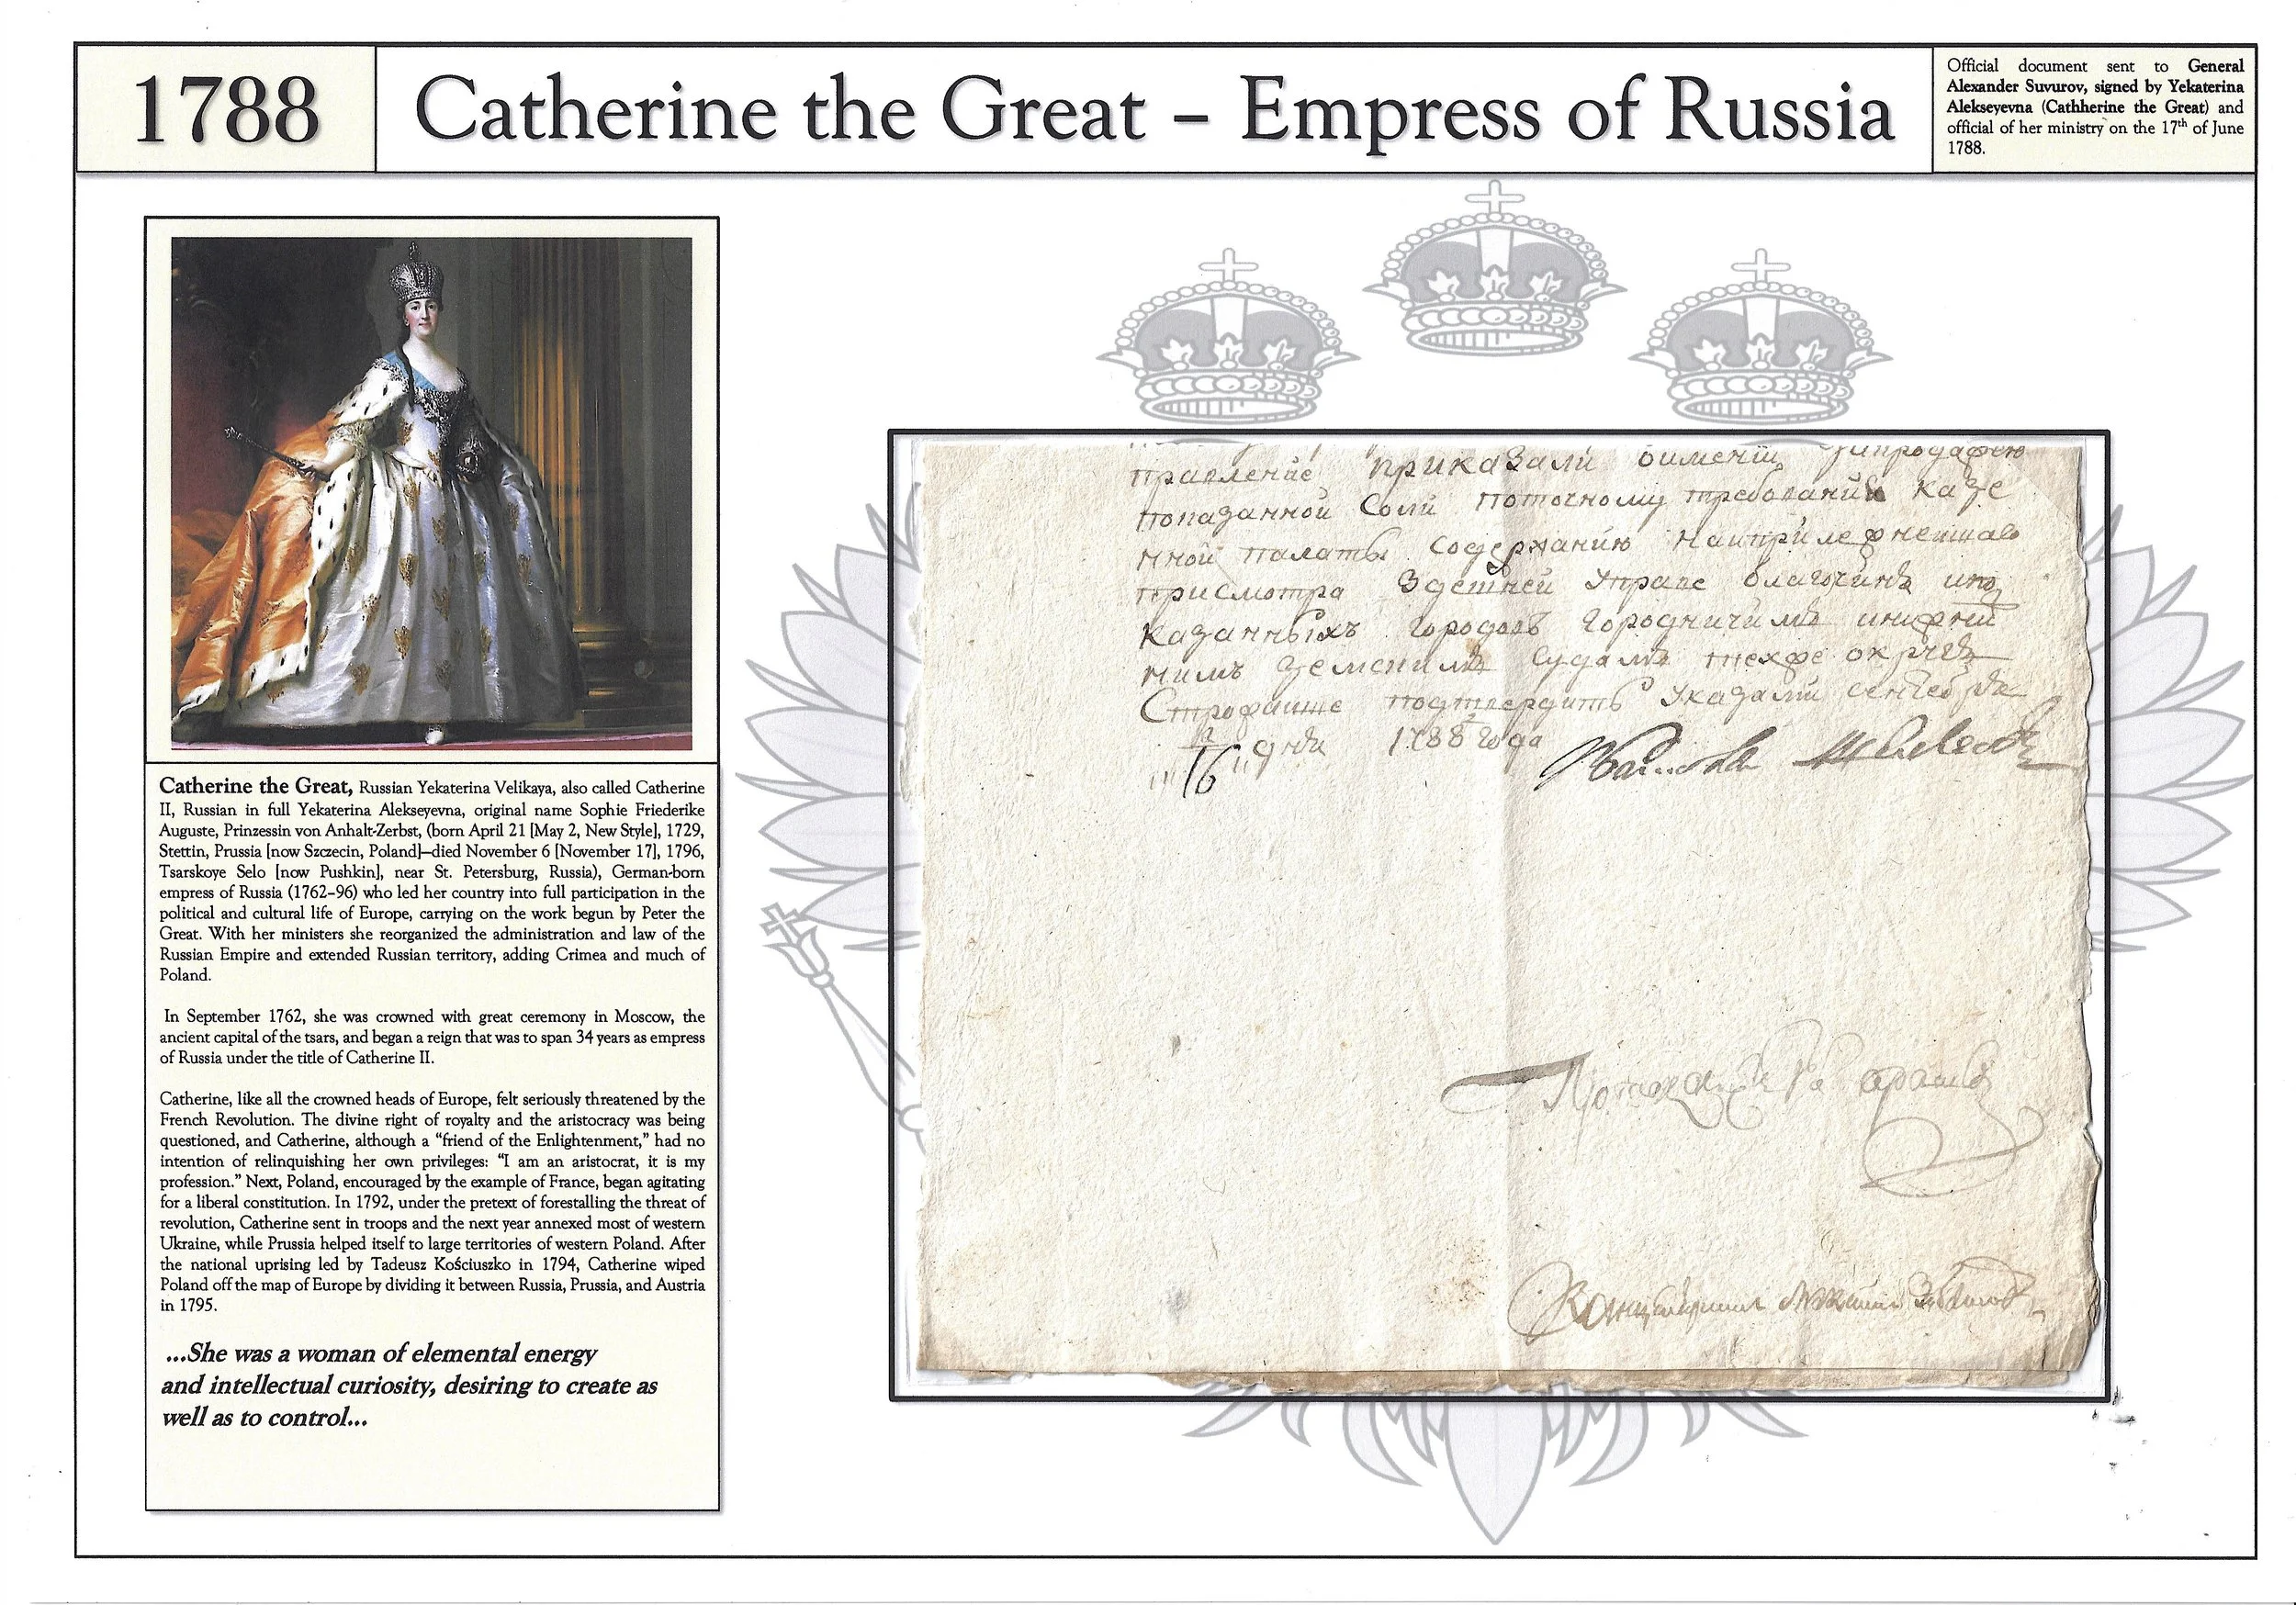 1788
Catherine the Great – Empress of Russia
Official document sent to General
Alexander Suvurov, signed by Yekaterina
Alekseyevna (Cathherine the Great) and
official of her ministry on the 17th of June
1788.
правление приказали оимении
показанной Соли поточному требованию казе
нной палаты содержанию
присмотра Здешней Управе благочинiя
казанныхъ городовъ Городничимъ
нимъ земскимъ Судамъ техже округъ
Строжаише подтвердить Указами сентебря
16 дня 1788 года
Catherine the Great, Russian Yekaterina Velikaya, also called Catherine
II, Russian in full Yekaterina Alekseyevna, original name Sophie Friederike
Auguste, Prinzessin von Anhalt-Zerbst, (born April 21 [May 2, New Style], 1729,
Stettin, Prussia [now Szczecin, Poland]—died November 6 [November 17], 1796,
Tsarskoye Selo [now Pushkin], near St. Petersburg, Russia), German-born
empress of Russia (1762–96) who led her country into full participation in the
political and cultural life of Europe, carrying on the work begun by Peter the
Great. With her ministers she reorganized the administration and law of the
Russian Empire and extended Russian territory, adding Crimea and much of
Poland.
In September 1762, she was crowned with great ceremony in Moscow, the
ancient capital of the tsars, and began a reign that was to span 34 years as empress
of Russia under the title of Catherine II.
Catherine, like all the crowned heads of Europe, felt seriously threatened by the
French Revolution. The divine right of royalty and the aristocracy was being
questioned, and Catherine, although a “friend of the Enlightenment,” had no
intention of relinquishing her own privileges: “I am an aristocrat, it is my
profession.” Next, Poland, encouraged by the example of France, began agitating
for a liberal constitution. In 1792, under the pretext of forestalling the threat of
revolution, Catherine sent in troops and the next year annexed most of western
Ukraine, while Prussia helped itself to large territories of western Poland. After
the national uprising led by Tadeusz Kościuszko in 1794, Catherine wiped
Poland off the map of Europe by dividing it between Russia, Prussia, and Austria
in 1795.
...She was a woman of elemental energy
and intellectual curiosity, desiring to create as
well as to control...